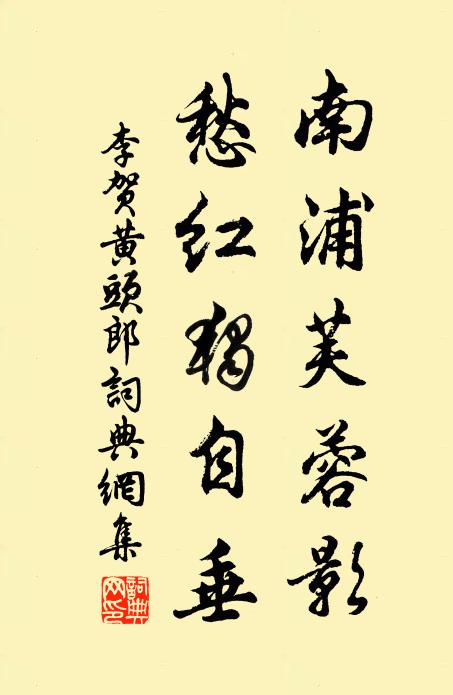 南浦芙蓉影
愁紅獨自垂
李贺黄頭郎詞典網集
詞典网印